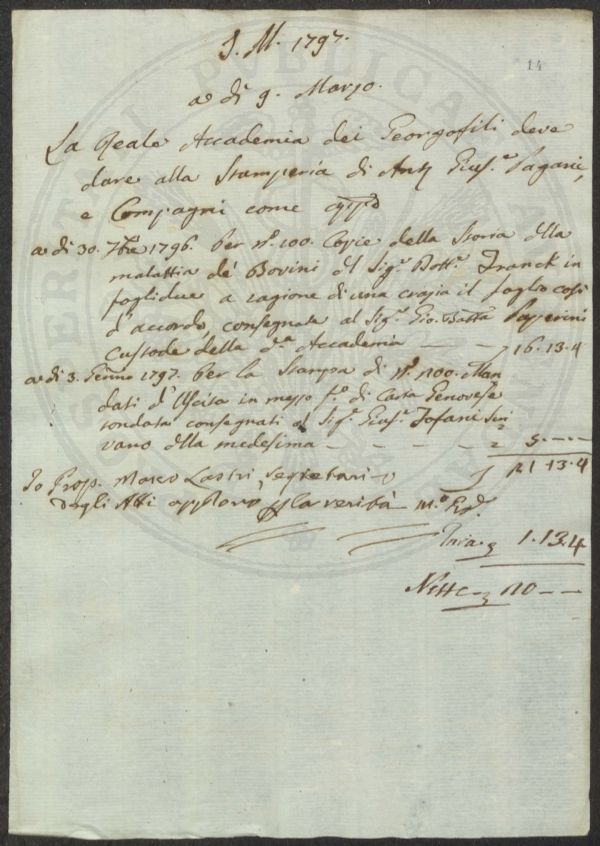 J. M. 1797.
14
a di 9. Marzo.
La Reale Accademia dei Georgofili deve
dare alla Stamperia di Ant. Gius.e Pagani,
e Compagni come app.o
a di 30. 7bre 1796. per n.o 200. Copie della Storia della
malattia de' Bovini del Sig.r Dott.r Franck in
foglidue a ragione di una crazia il foglio così
d'accordo, consegnate al Sig.r Gio. Batta Paperini
Custode della d.a Accademia — — 16.13.4
a di 3. Genno 1797. per la Stampa di n.o 200. Man
dati d'Uscita in mezzo f.o di Carta Genovese
tondata consegnati al Sig.r Gius.e Tofani Scri
vano della medesima — — — — — 5.—.—
21.13.4
Io Prop. Marco Lastri Segretario
degli Atti approvo p la verità m.o pp.a
Tara 1.13.4
Netto 20 — —